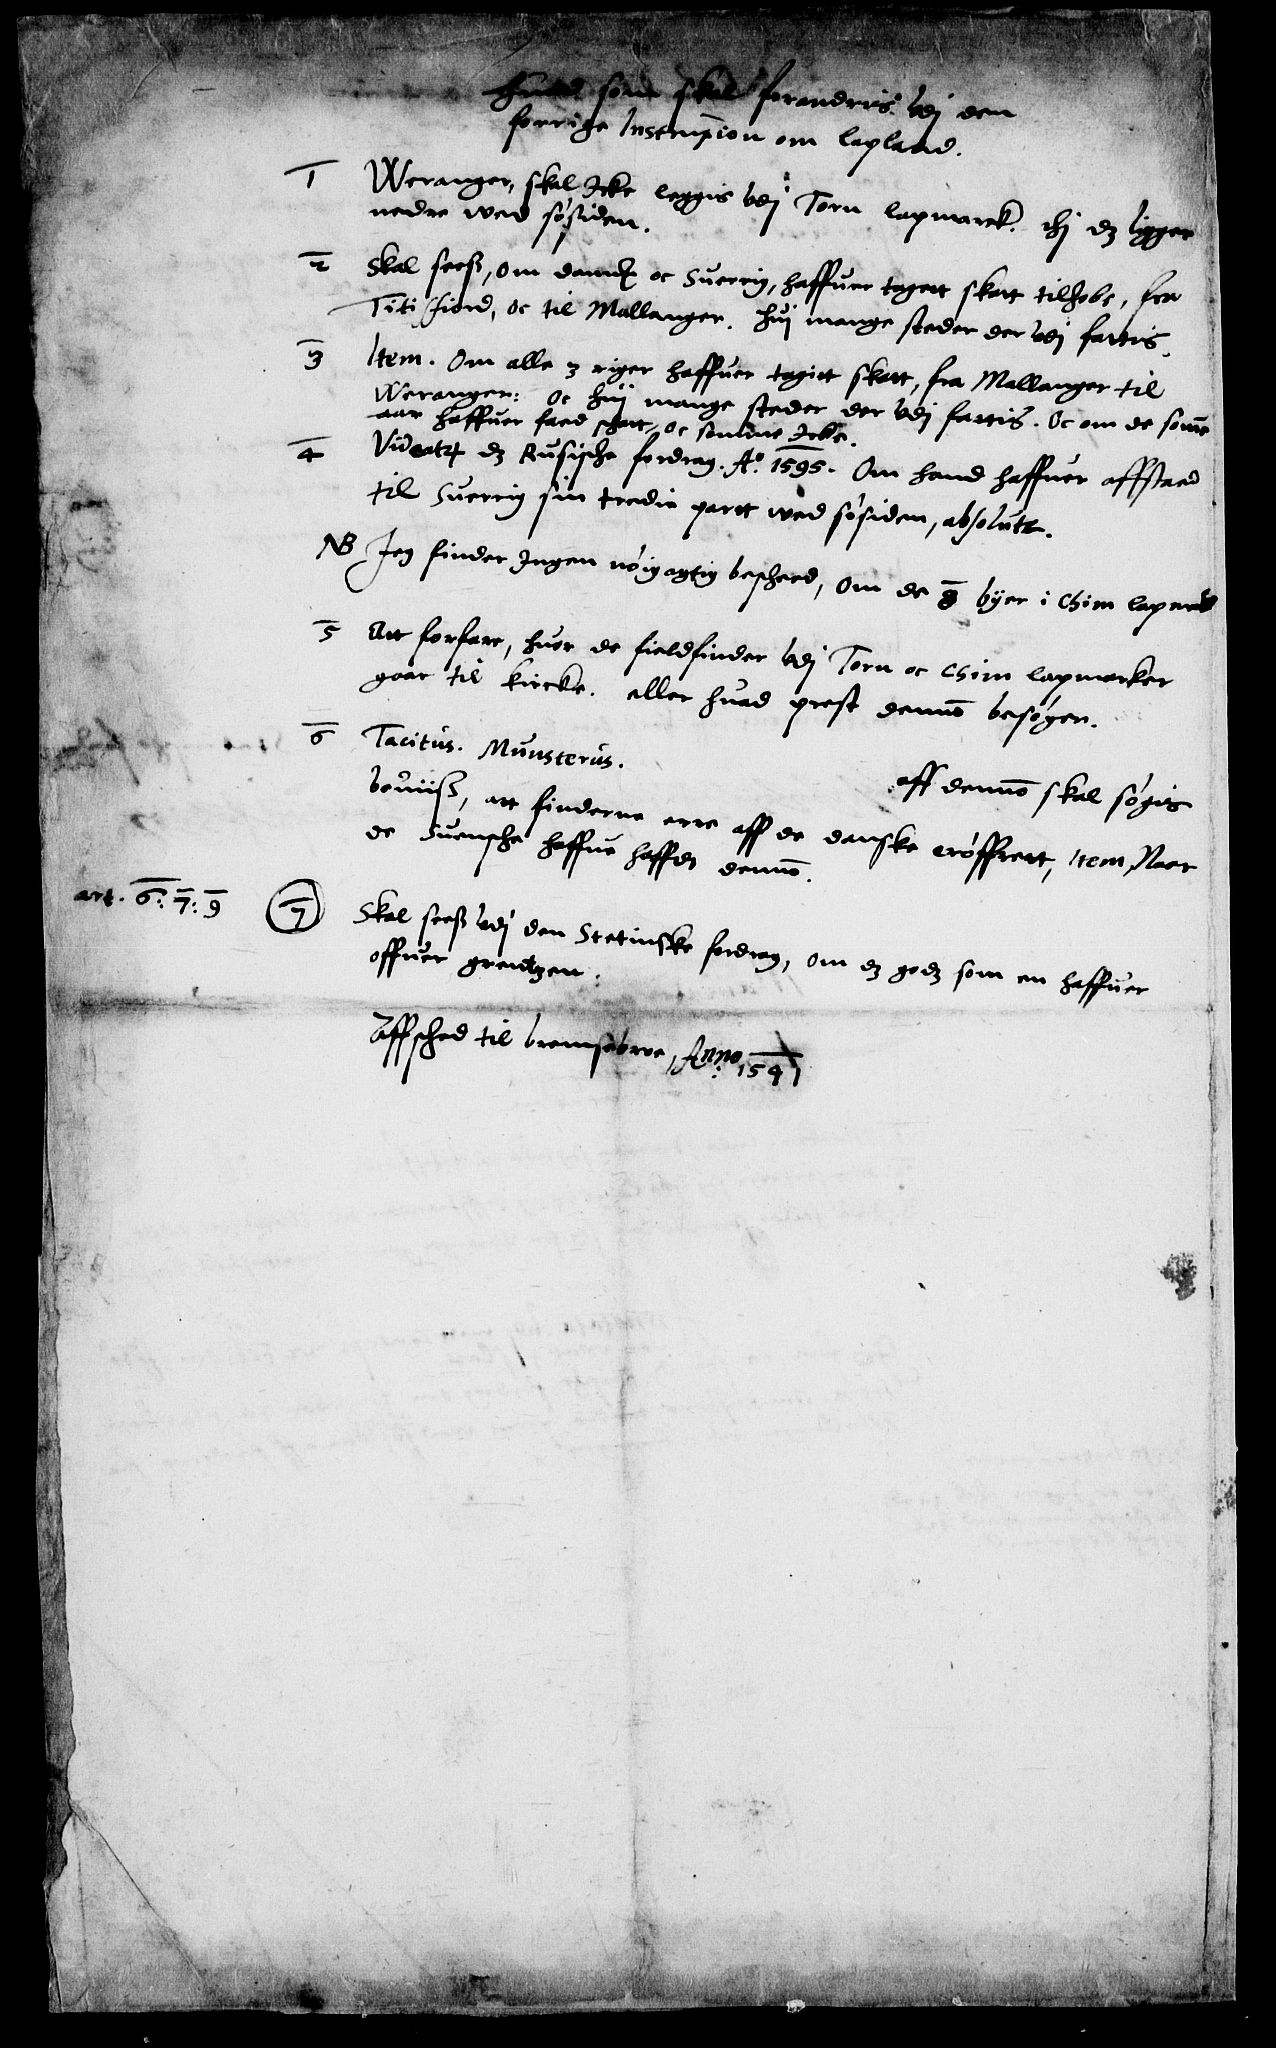 Huad som skal forandris vdj den
forrige Instruction om lapland.
1 Weranger, skal Icke leggis vdj Torn lapmarck. thj dz ligger
nedre wed søsiden.
2 Skal seeß, Om danmk oc Suerrig, haffuer tagett skatt tilhobe, fra
Titisfiord, oc til Mallanger. huj mange steder der vdj fattis.
3 Item. Om alle 3 riger haffuer tagitt skatt, fra Mallanger til
Weranger: Oc huj mange steder der vdj fattis. Oc om de som̄e
aar haffuer faed skatt, oc somme Icke.
4 Videatr dz Rusische fordrag. Ao. 1595. Om hand haffuer affstaed
til Suerrig sin tredie partt wed søsiden, absolute.
NB Jeg finder Ingen nöigagtig beskeed, Om de 8 byer i Chim lapmark
5 Att forfare, huor de fieldfinder vdj Torn oc Chim lapmarker
gaar til kircke. eller huad prest dennō besøger.
6 Tacitus. Munsterus.
aff dennō skal søgis
beuiiß, att finderne erre aff de danske erøffrett, Item, Naar
de Suensche haffue hafft dennō.
art. 6: 7: 9
7 Skal seeß vdj den Stetinske fordrag, om dz godz som en haffuer
offuer grentzen:
Affsched til bremsebroe, Anno: 1541